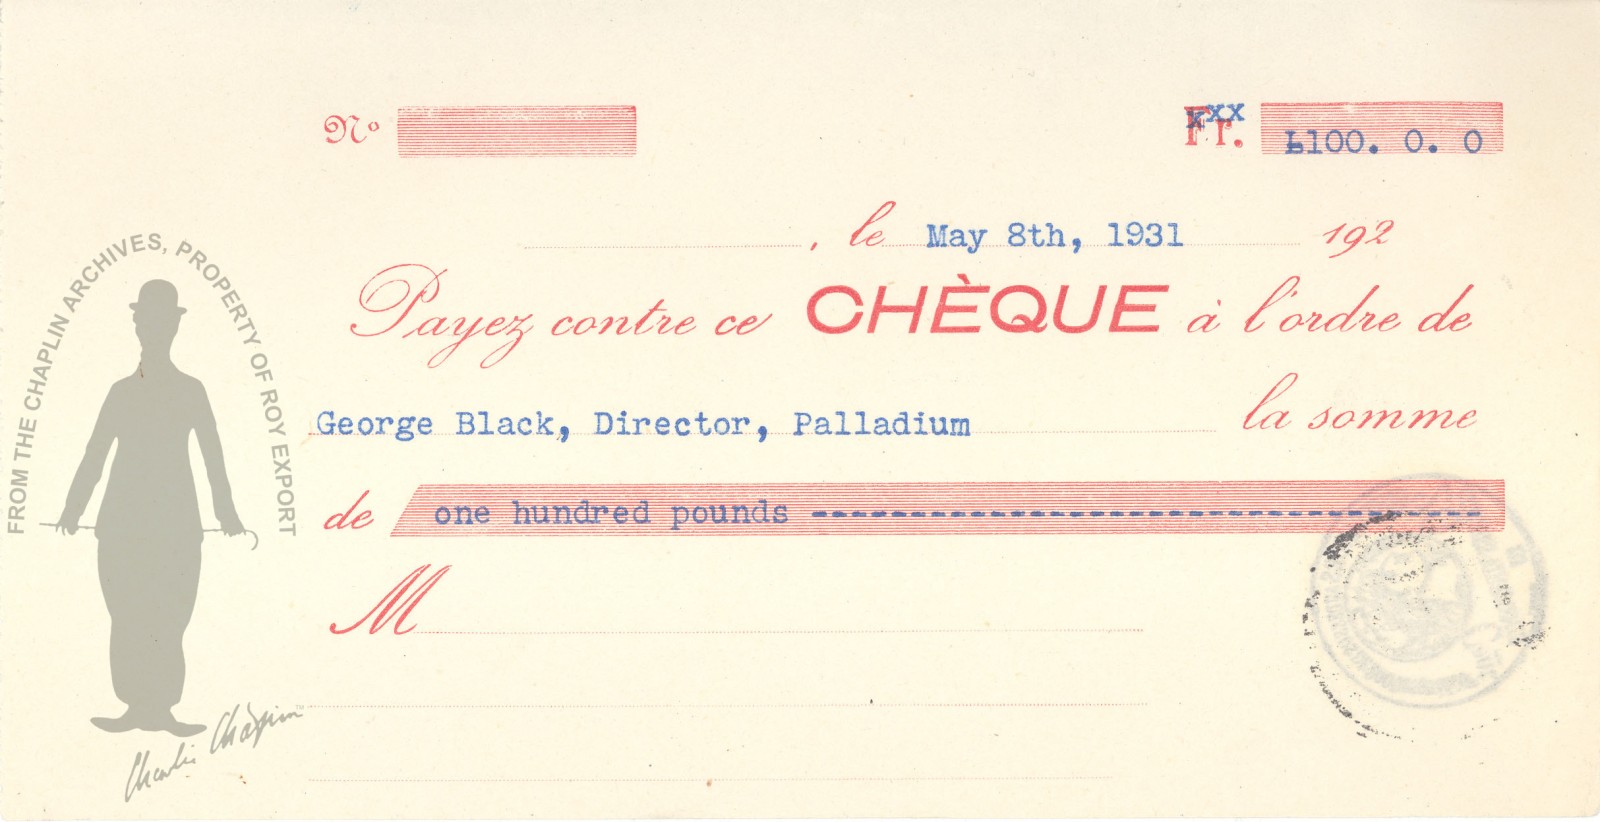 Nº
Fr. xxx £100. 0. 0
, le May 8th, 1931 192
Payez contre ce CHÈQUE à l'ordre de
George Black, Director, Palladium la somme
de one hundred pounds --------------------------------
M
FROM THE CHAPLIN ARCHIVES, PROPERTY OF ROY EXPORT
Charlie Chaplin™